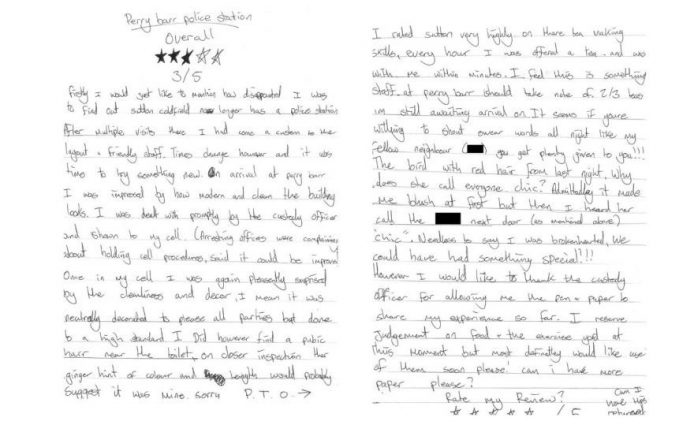 Perry barr police station
Overall
★★★☆☆
3/5
firstly I would just like to mention how disapointed I was
to find out sutton coldfield no longer has a police station
After multiple visits there I had some a custom to the
layout + friendly staff. Times change however and it was
time to try something new. On arrival at perry barr
I was impressed by how modern and clean the building
looks. I was dealt with promptly by the custody officer
and shown to my cell, (Arresting offices were complaining
about holding cell procedures, said it could be improved
Once in my cell I was again pleasently suprised
by the cleanliness and decor, I mean it was
neutrally decorated to please all parties but done
to a high standard I Did however find a pubic
hair near the toilet, on closer inspection the
ginger hint of colour and lengths would probably
suggest it was mine. sorry P.T.O. →
I rated sutton very highly on there tea making
skills, every hour I was offered a tea and was
with me within minutes. I feel this is something
staff at perry barr should take note of 2/3 teas
im still awaiting arrival on. It seems if youre
willing to shout swear words all night like my
fellow neighbour ( ) you get plenty given to you!!!
The bird with red hair from last night, why
does she call everyone chic? Admittedley it made
me blush at first but then I heard her
call the next door (as mentiond above)
"chic". Needless to say I was brokenharted, We
could have had something special!!!
However I would like to thank the custody
officer for allowing me the pen + paper to
share my experience so far. I reserve
Judgement on food + the exercise yard at
this moment but most definetley would like use
of them soon please! can i have more
paper please?
Rate my Review? Can I
☆ ☆ ☆ ☆ ☆ /5 have this